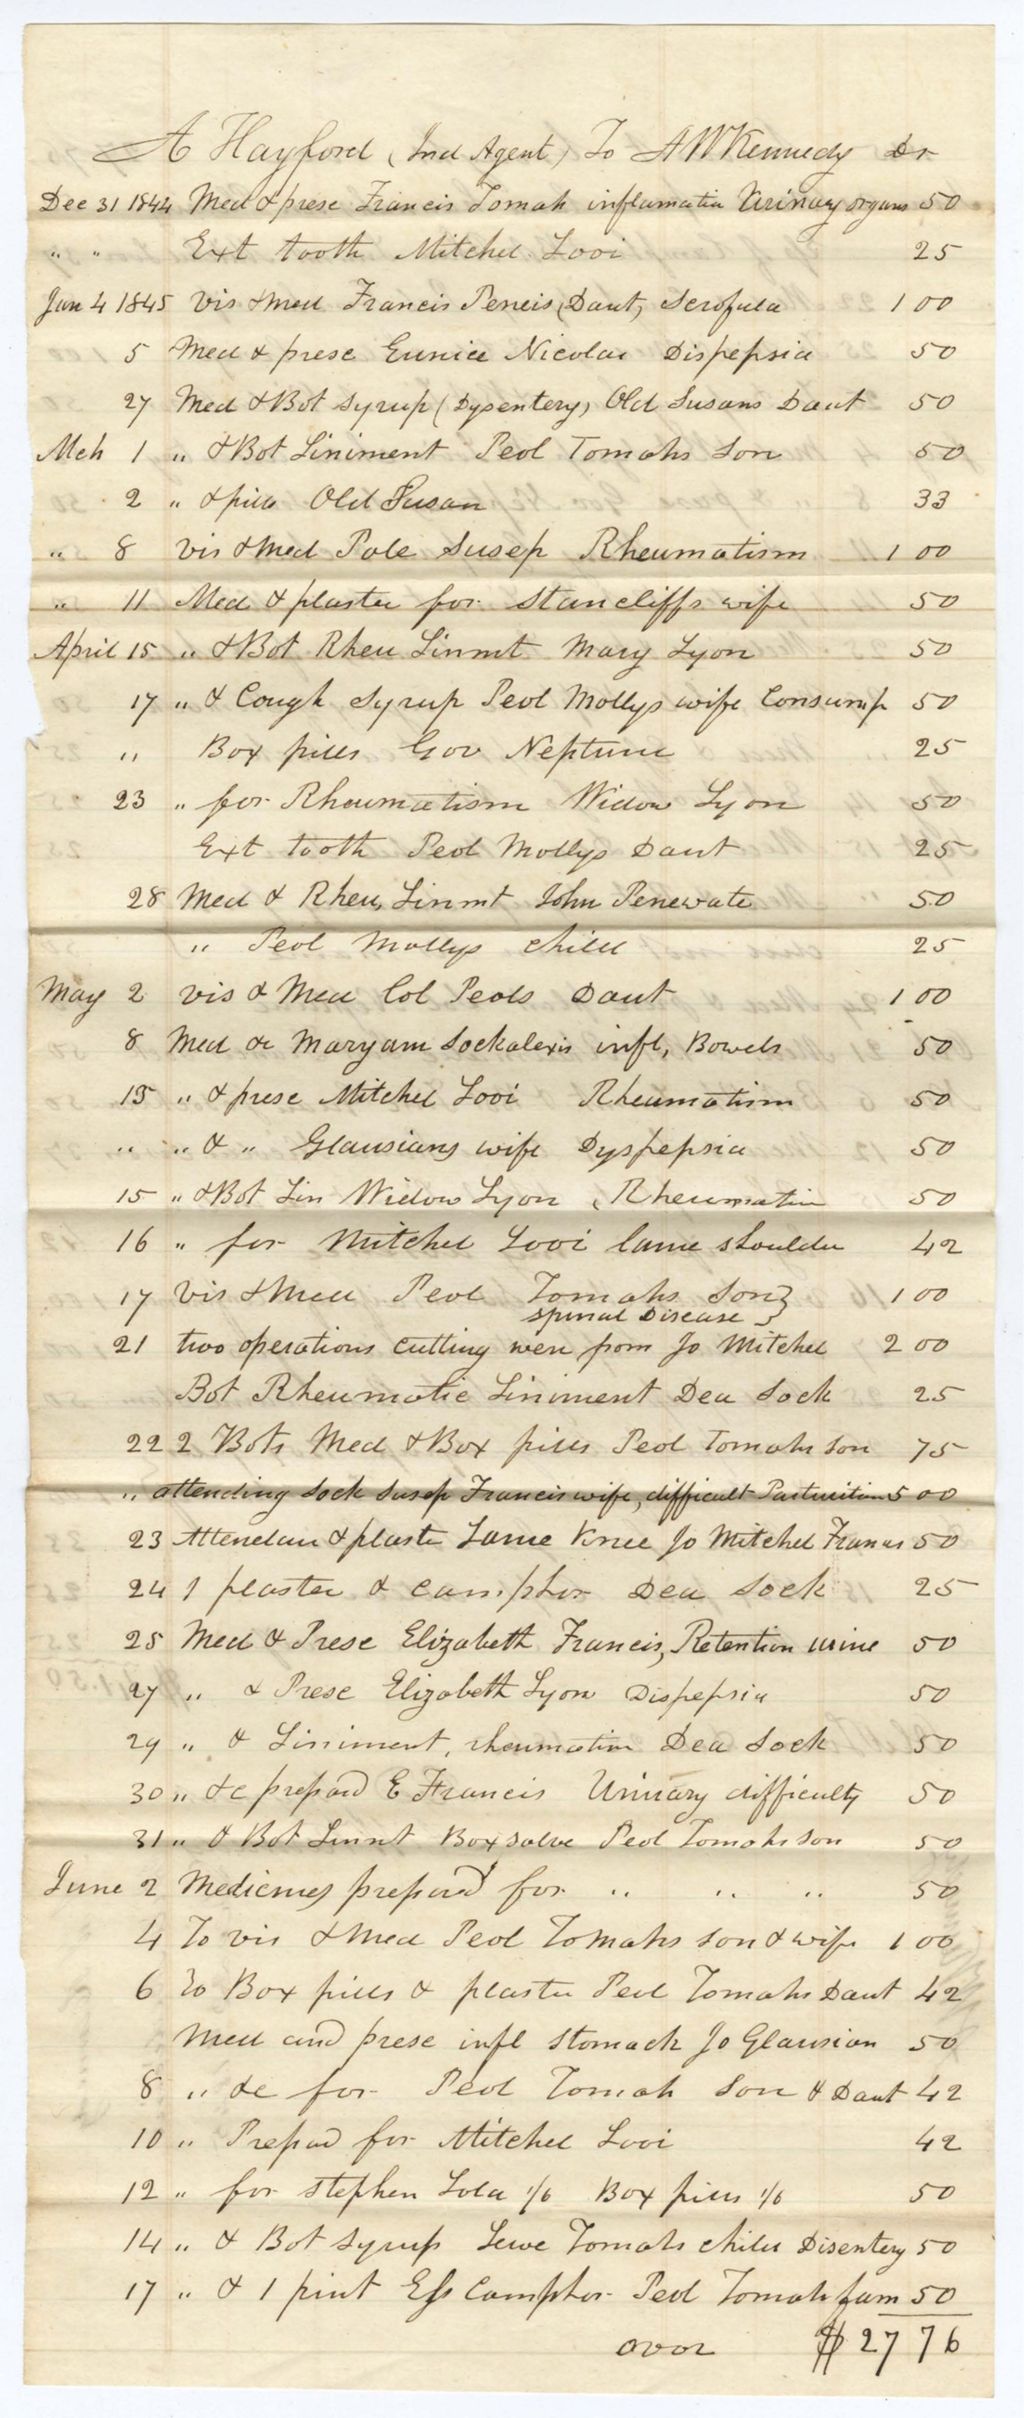 A Hayford (Ind Agent) To A W Kennedy Dr
Dec 31 1844 Med & presc Francis Tomah inflamatin Urinary organs 50
" " Ext tooth Mitchel Looi 25
Jan 4 1845 Vis & Med Francis Peneis (Daut) Scrofula 1 00
5 Med & presc Eunice Nicolar Dispepsia 50
27 Med & Bot Syrup (Dysentery) Old Susans Daut 50
Mch 1 " & Bot Liniment Peol Tomahs Son 50
2 " & pills Old Susan 33
" 8 Vis & Med Pole Susep Rheumatism 1 00
" 11 Med & plaster for Stancliffs wife 50
April 15 " & Bot Rheu Linmt Mary Lyon 50
17 " & Cough Syrup Peol Mollys wife Consump 50
" Box pills Gov Neptune 25
23 " for Rheumatism Widow Lyon 50
Ext tooth Peol Mollys Daut 25
28 Med & Rheu, Linmt John Penewate 50
" Peol Mollys child 25
May 2 vis & Med Col Peols Daut 1 00
8 Med &c Maryann Sockalexis infl, Bowels 50
15 " & presc Mitchel Looi Rheumatism 50
" " & " Glausians wife Dyspepsia 50
15 " & Bot Lin Widow Lyon, Rheumatin 50
16 " for Mitchel Looi lame shoulder 42
17 Vis & Med Peol Tomahs Son }
spinal Disease } 1 00
21 two operations cutting wen from Jo Mitchel 2 00
Bot Rheumatic Liniment Dea Sock 25
22 2 Bots Med & Box pills Peol Tomahs Son 75
" attending Sock Susep Francis wife, difficult Parturition 5 00
23 Attendanc & plaste Lame Knee Jo Mitchel Francis 50
24 1 plaster & camphor Dea Sock 25
25 Med & Presc Elizabeth Francis, Retention urine 50
27 " & Presc Elizabeth Lyon Dispepsia 50
29 " & Liniment, rheumatism Dea Sock 50
30 " &c prepard E Francis Urinary difficulty 50
31 " & Bot Linmt Box salve Peol Tomahs son 50
June 2 Medicines prepared for " " " 50
4 To vis & Med Peol Tomahs Son & wife 1 00
6 To Box pills & plaster Peol Tomahs Daut 42
Med and presc infl Stomach Jo Glausian 50
8 " &c for Peol Tomah Son & Daut 42
10 " Prepard for Mitchel Looi 42
12 " for Stephen Lola 1/6 Box pills 1/6 50
14 " & Bot Syrup Lewe Tomahs child Disentery 50
17 " & 1 pint Ess Camphor Peol Tomah fam 50
over $27 76